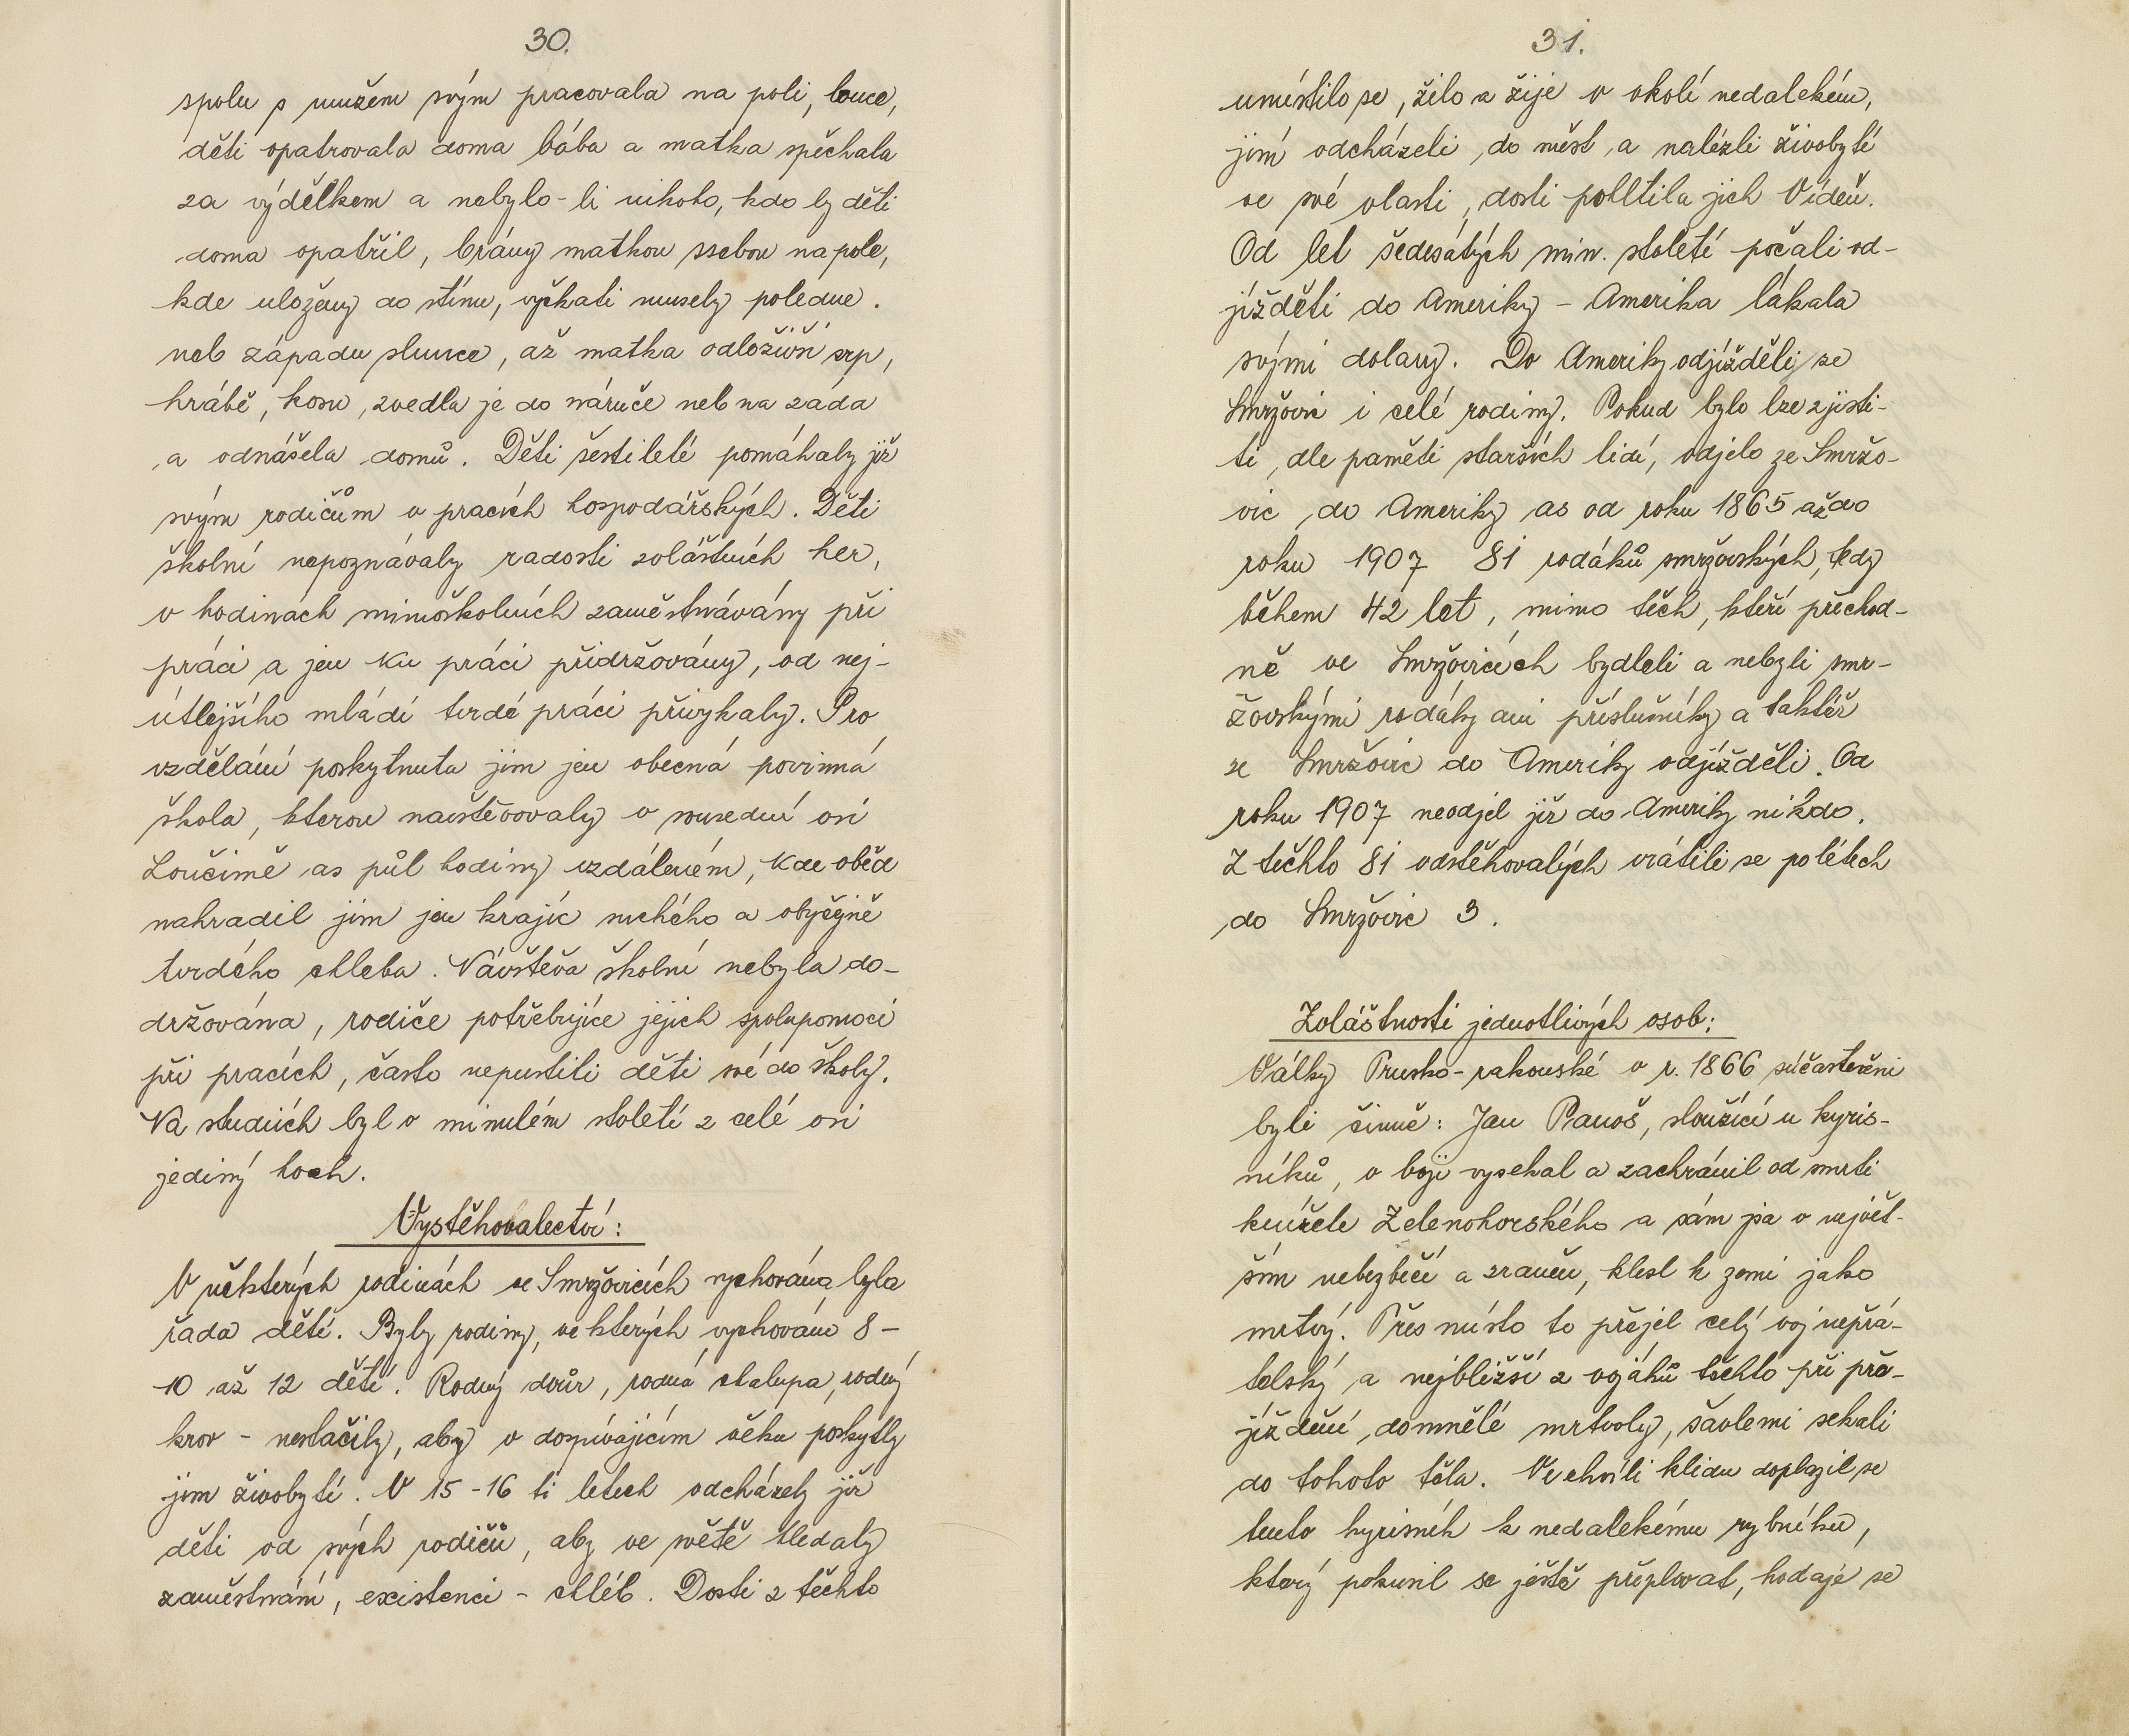 30.
spolu s mužem svým pracovala na poli, louce,
děti opatrovala doma bába a matka spěchala
za výdělkem a nebylo-li nikoho, kdo by děti
doma opatřil, brány matkou ssebou na pole,
kde uloženy do stínu, vyčkati musely poledne.
neb západu slunce, až matka odloživši srp,
hrábě, kosu, zvedla je do náruče neb na záda
a odnášela domů. Děti šestileté pomáhaly již
svým rodičům v pracích hospodářských. Děti
školní nepoznávaly radosti zvláštních her,
v hodinách mimoškolních zaměstnávány při
práci a jen ku práci přidržovány, od nej-
útlejšího mládí tvrdé práci přivykaly. Pro
vzdělání poskytnuta jim jen obecná povinná
škola, kterou navštěvovaly v sousední osi
Loučimě as půl hodiny vzdáleném, kde oběd
nahradil jim jen krajíc suchého a obyčejně
tvrdého chleba. Návštěva školní nebyla do-
držována, rodiče potřebujíce jejich spolupomoci
při pracích, často nepustili děti své do školy.
Na studiích byl v minulém století z celé osi
jediný hoch.
Vystěhovalectví:
V některých rodinách ve Smržovicích vychována byla
řada dětí. Byly rodiny, ve kterých vychováno 8-
10 až 12 dětí. Rodný dvůr, rodná chalupa, rodný
krov - nestačily, aby v dospívajícím věku poskytly
jim živobytí. V 15-16 ti letech odcházely již
děti od svých rodičů, aby ve světě hledaly
zaměstnání, existenci - chléb. Dosti z těchto
31.
umístilo se, žilo a žije v okolí nedalekém,
jiní odcházeli do měst a nalézli živobytí
ve své vlasti, dosti pohltila jich Vídeň.
Od let šedesátých min. století počali od-
jížděti do Ameriky - Amerika lákala
svými dolary. Do Ameriky odjížděli ze
Smržovic i celé rodiny. Pokud bylo lze zjisti-
ti, dle paměti starších lidí, odjelo ze Smržo-
vic do Ameriky as od roku 1865 až do
roku 1907 81 rodáků smržovských, tedy
během 42 let, mimo těch, kteří přechod-
ně ve Smržovicích bydleli a nebyli smr-
žovskými rodáky ani příslušníky a taktéž
ze Smržovic do Ameriky odjížděli. Od
roku 1907 neodjel již do Ameriky nikdo.
Z těchto 81 odstěhovalých vrátili se po létech
do Smržovic 3.
Zvláštnosti jednotlivých osob:
Války Prusko-rakouské v r. 1866 súčastněni
byli činně: Jan Panoš, sloužící u kyris-
níků, v boji vysekal a zachránil od smrti
knížete Zelenohorského a sám jsa v největ-
ším nebezbečí a zraněn, klesl k zemi jako
mrtvý. Přes místo to přejel celý voj nepřá-
telský a nejbližší z vojáků těchto při pře-
jíždění domnělé mrtvoly, šavlemi sekali
do tohoto těla. Ve chvíli klidu doplazil se
tento kyrisník k nedalekému rybníku,
který pokusil se ještě přeplovat, hodaje se